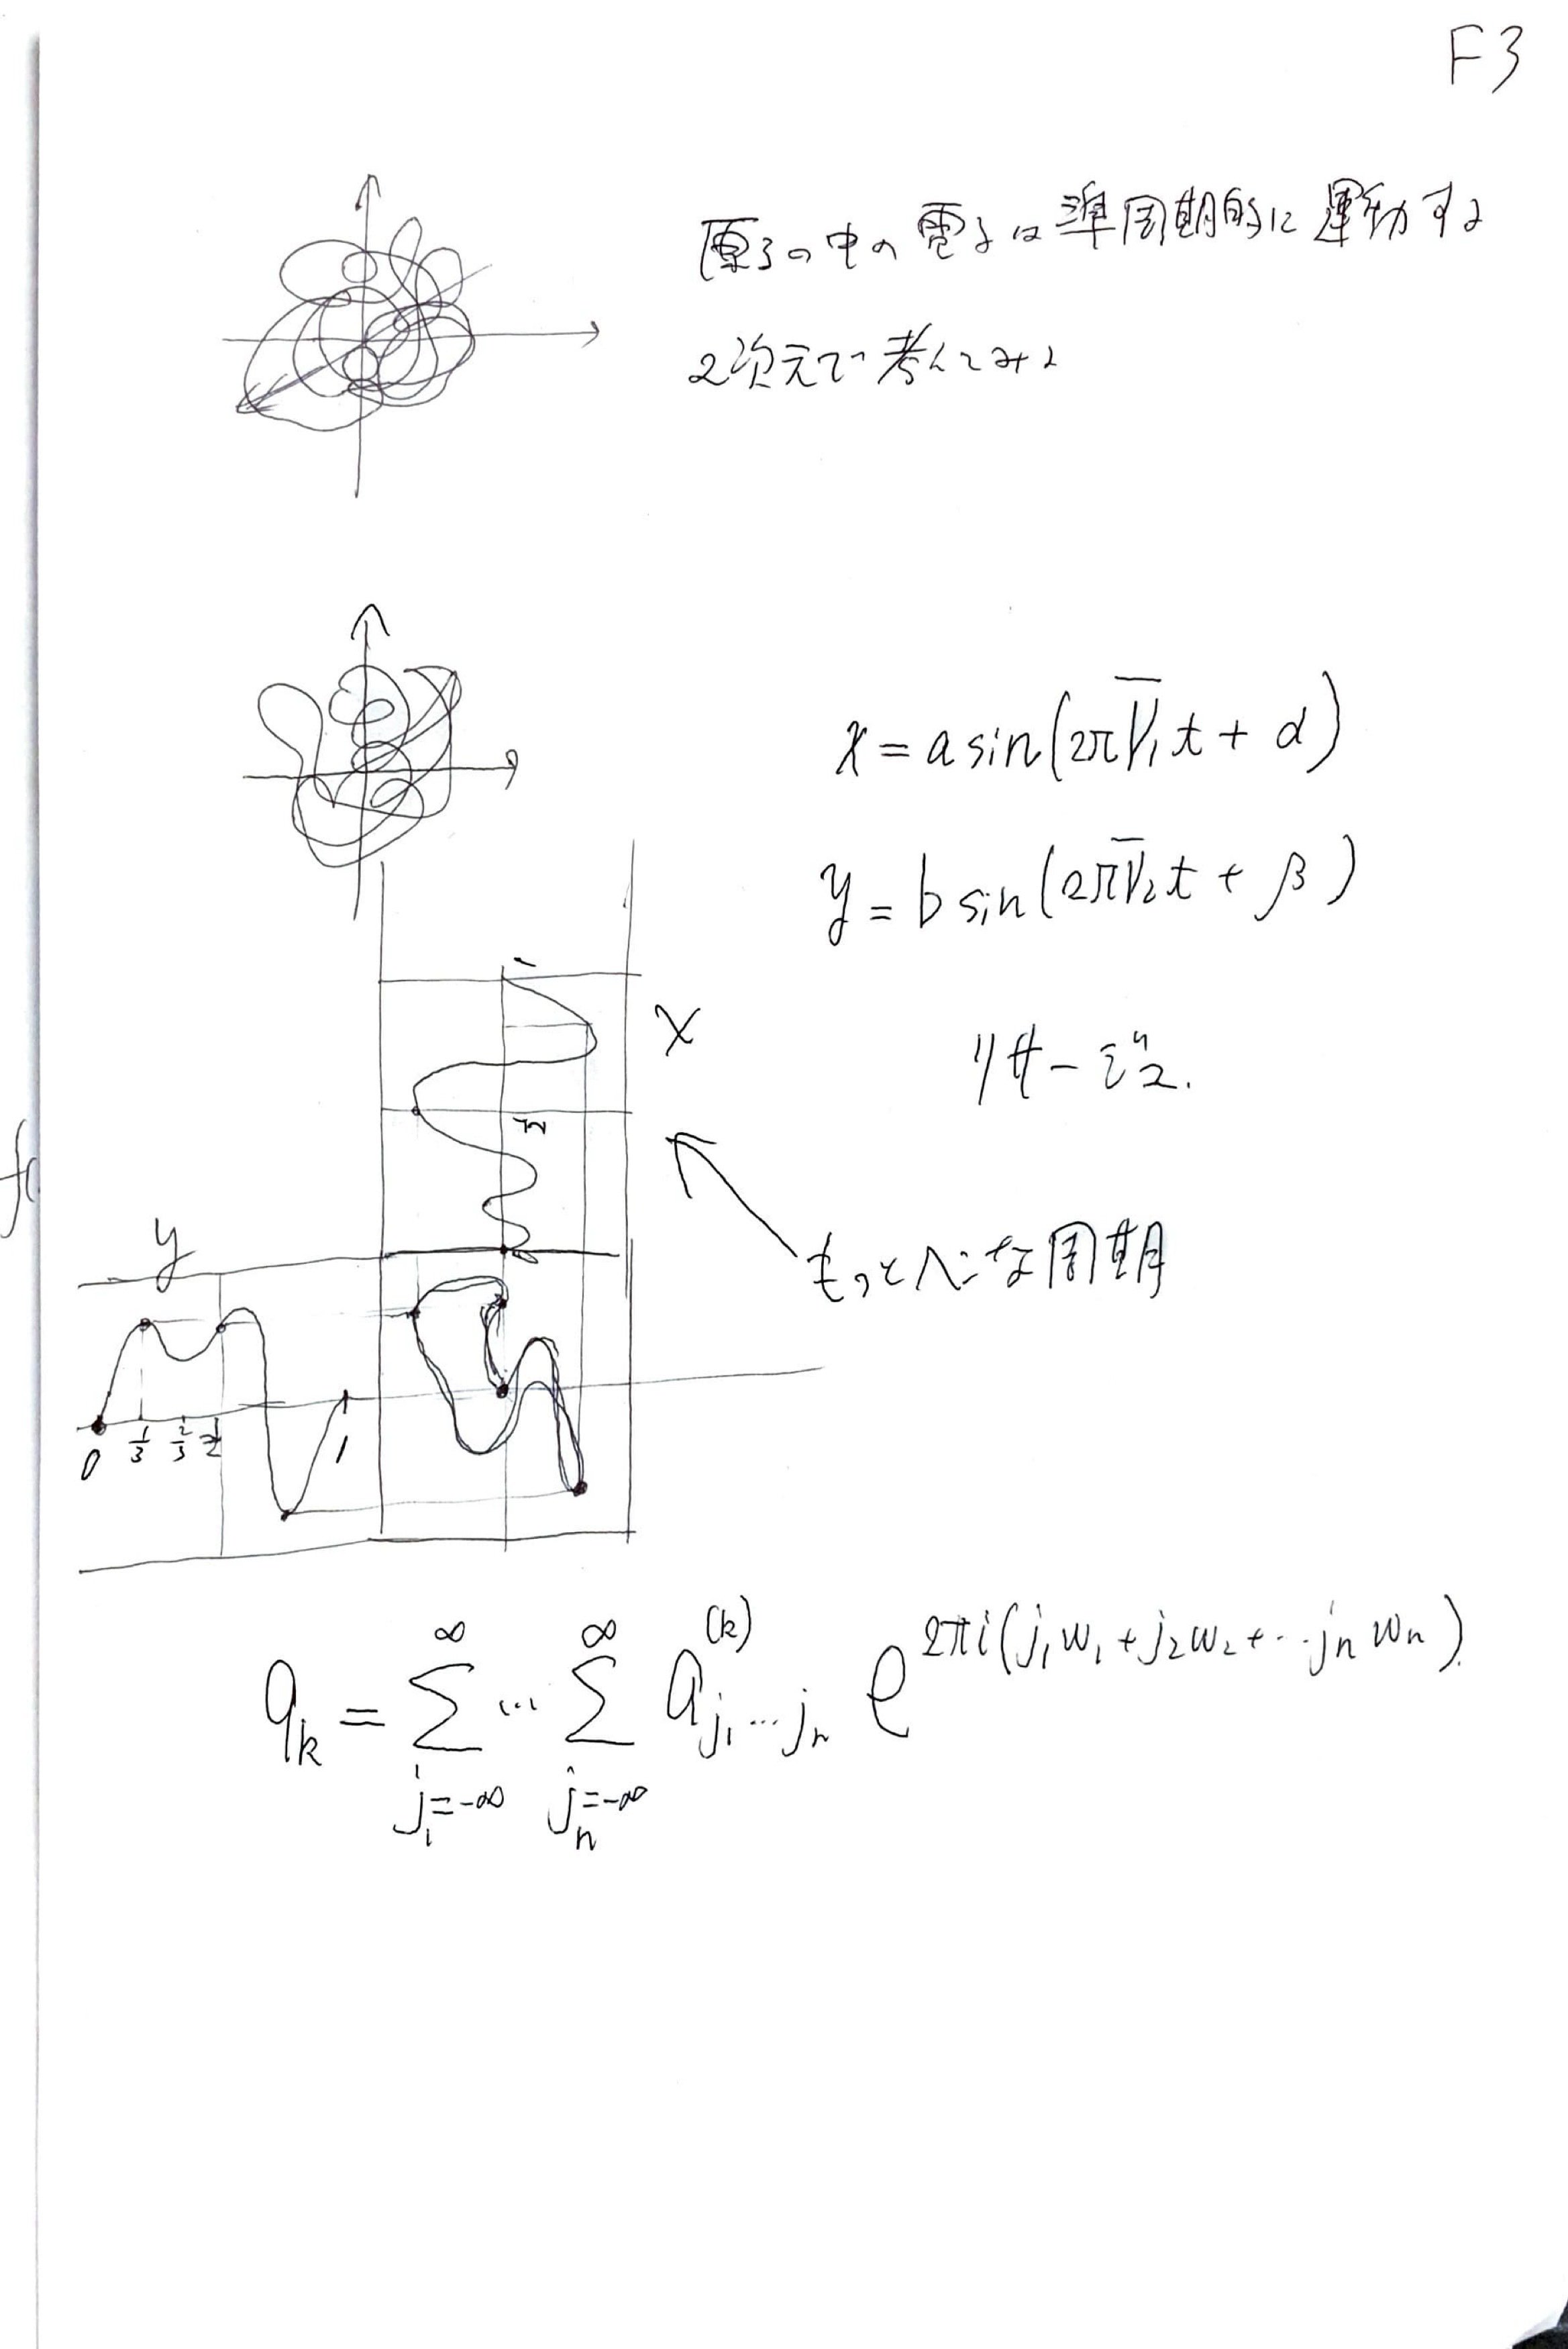 F3
原子の中の電子は準周期的に運動する
2次元で考えてみる
x = a sin(2π ν̅₁t + α)
y = b sin(2π ν̅₂t + β)
リサージュ.
1
x
1/2
もっとへんな周期
0
y
0 1/3 2/3 1/2 1
q_k = Σ_{j₁=-∞}^{∞} ... Σ_{jₙ=-∞}^{∞} a^{(k)}_{j₁...jₙ} e^{2πi(j₁w₁+j₂w₂+...jₙwₙ)}